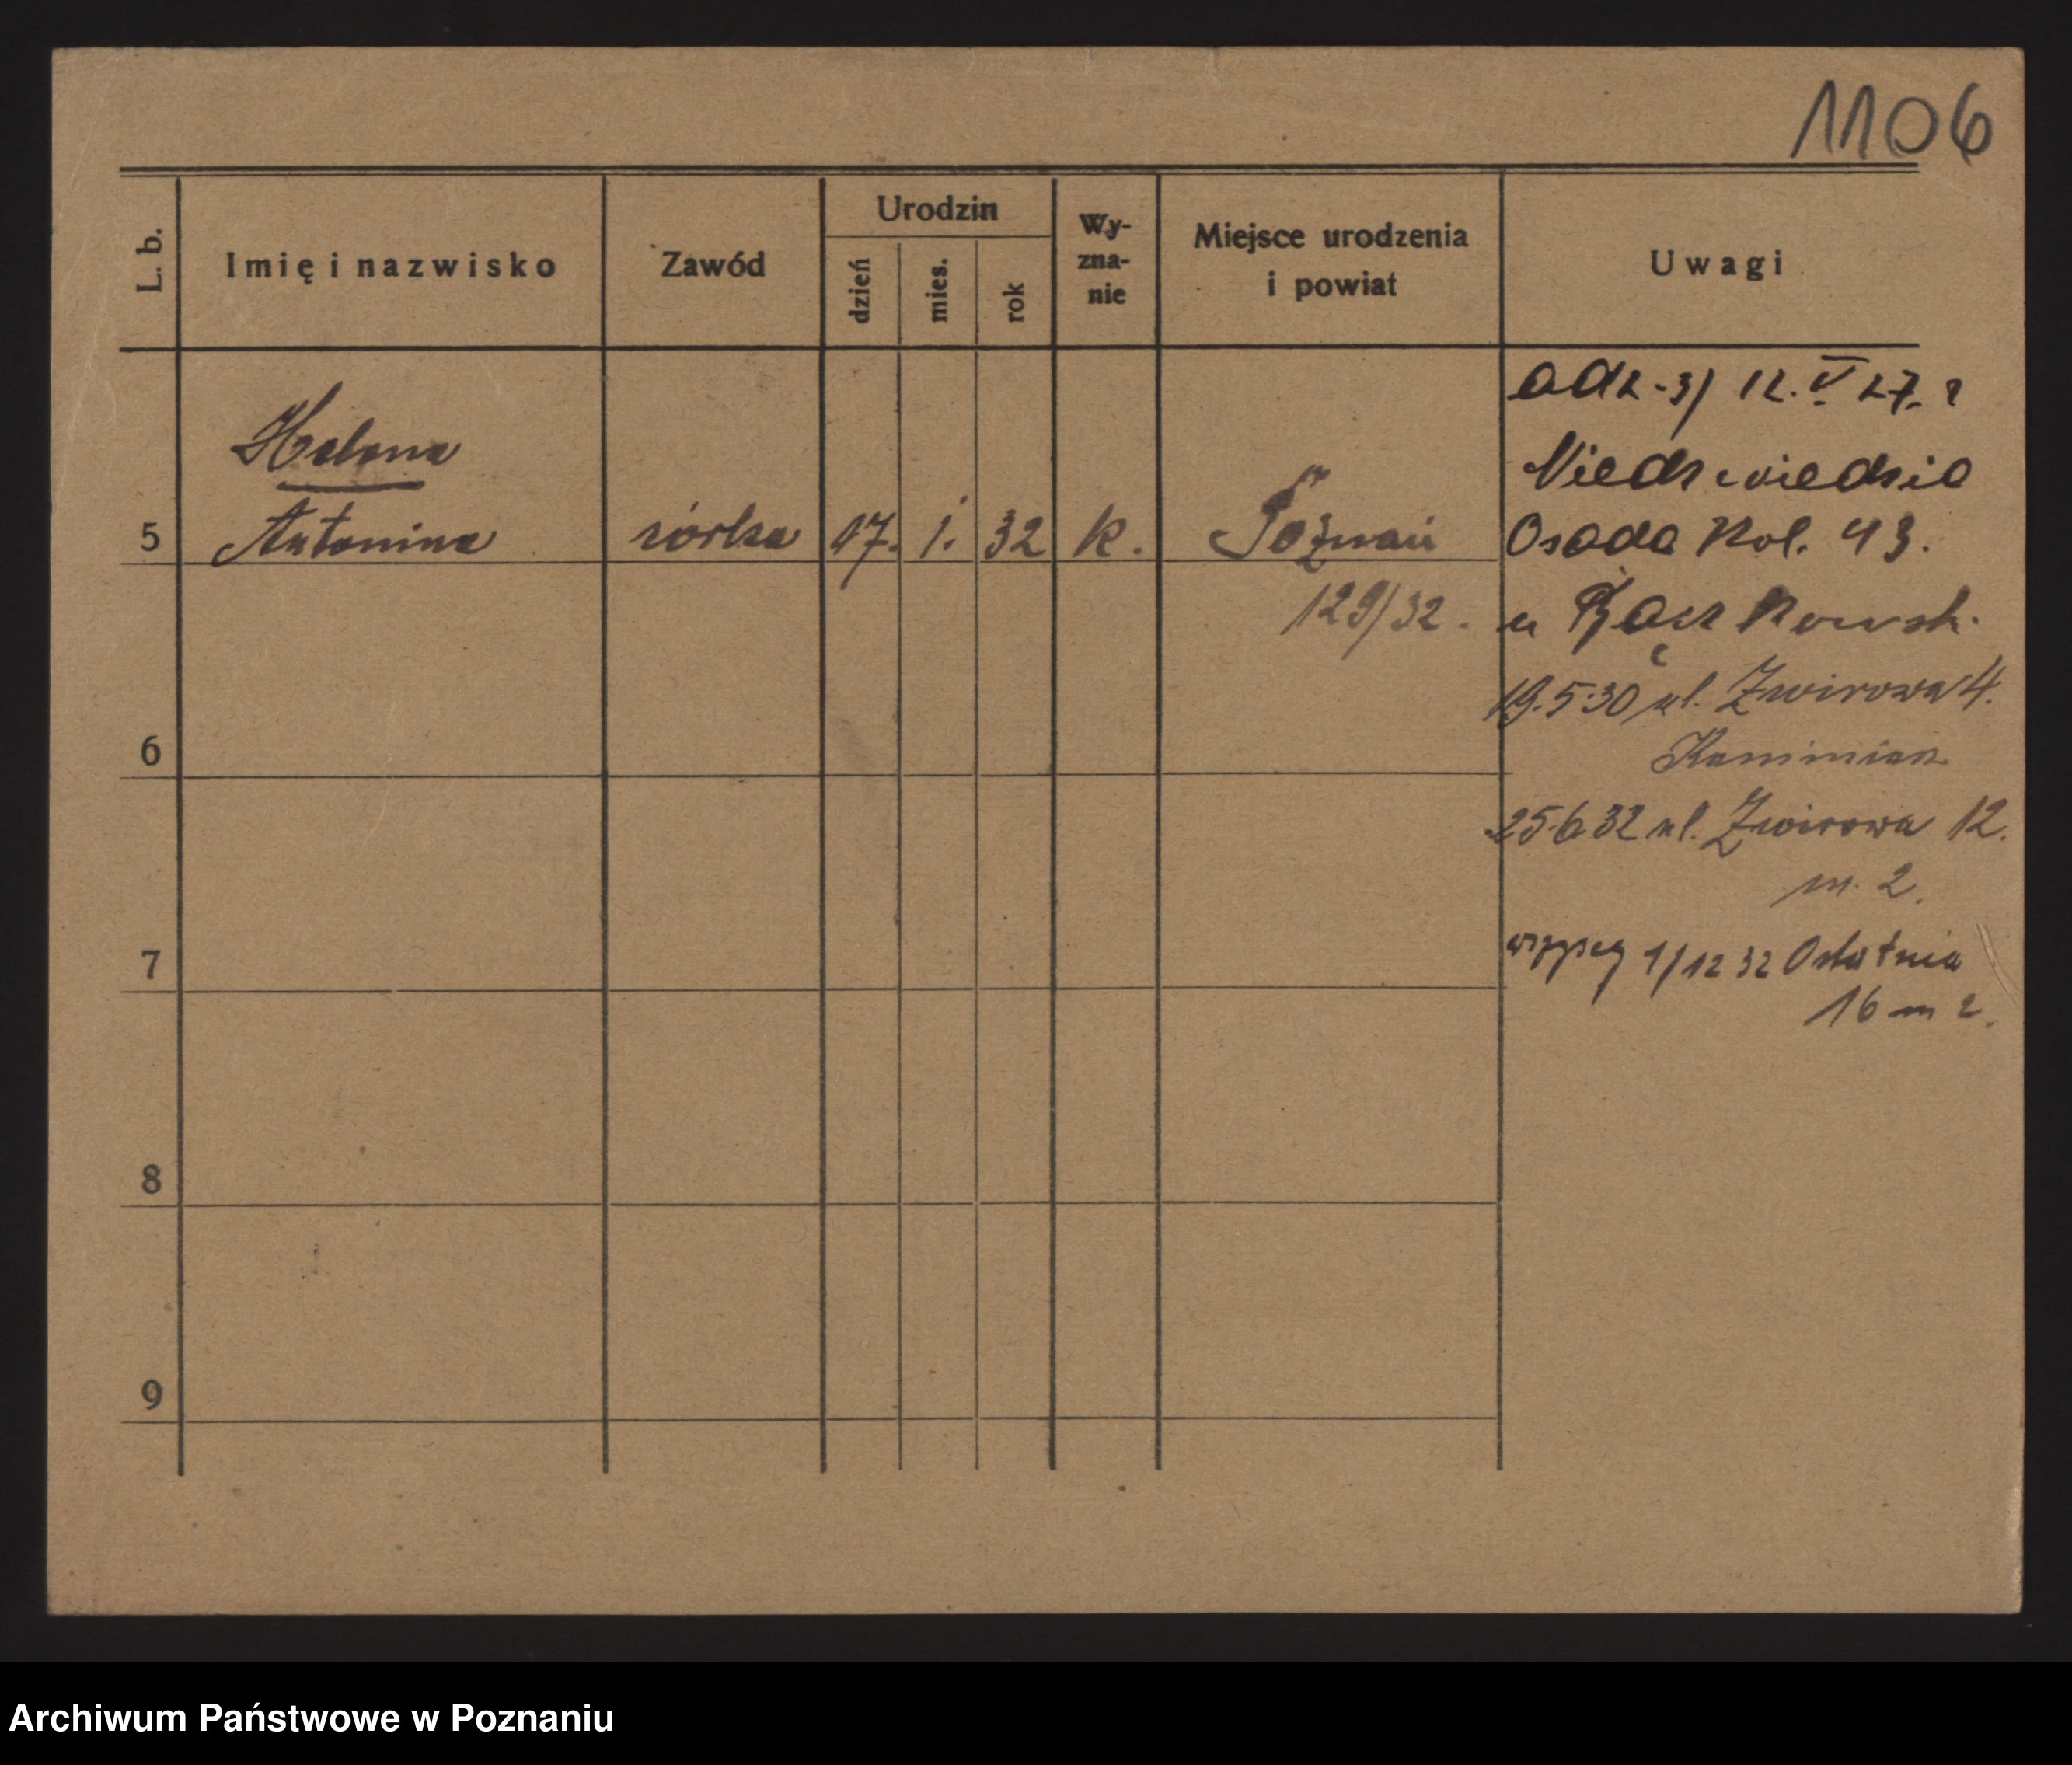 1106
L. b.
Imię i nazwisko
Zawód
Urodzin
dzień
mies.
rok
Wy-
zna-
nie
Miejsce urodzenia
i powiat
Uwagi
Helena
5 Antonina córka 17. 1. 32 k. Poznań
129/32.
6
7
8
9
12. V 27. r
Niedzwiedzia
Osada Kol. 43.
u
19.5.30 ul. Zwirowa 4.
Kaminiak
25.6.32 ul. Zwirowa 12.
m. 2.
wszyscy 1/12 32 Ostatnia
16 m 2.
Archiwum Państwowe w Poznaniu